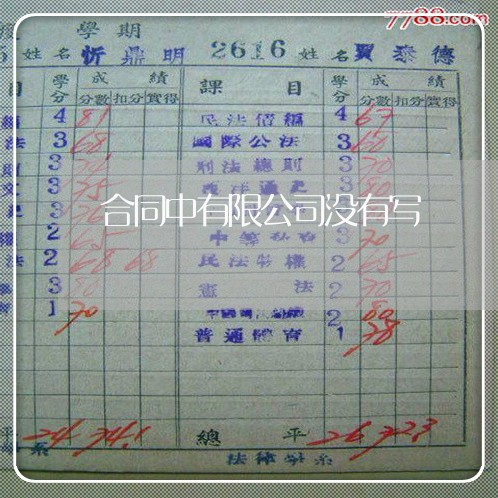 7788.com
學期
5 姓名 忻鼎明 2616 姓名 賈泰德
目 學分 成績 分數 扣分 實得 課目 學分 成績 分數 扣分 實得
4 81 民法債編 4 67
法 3 68 國際公法 3 60
3 刑法總則 3 70
3 75 西洋通史 3
合同中有限公司没有写
2 65 3 70
法 2 68 68 民法物權 2 65
3 80 憲法 2 70
1 70 2 80
普通體育 1 78
平 24 74.1 總平 26 72.3
系 法律學系